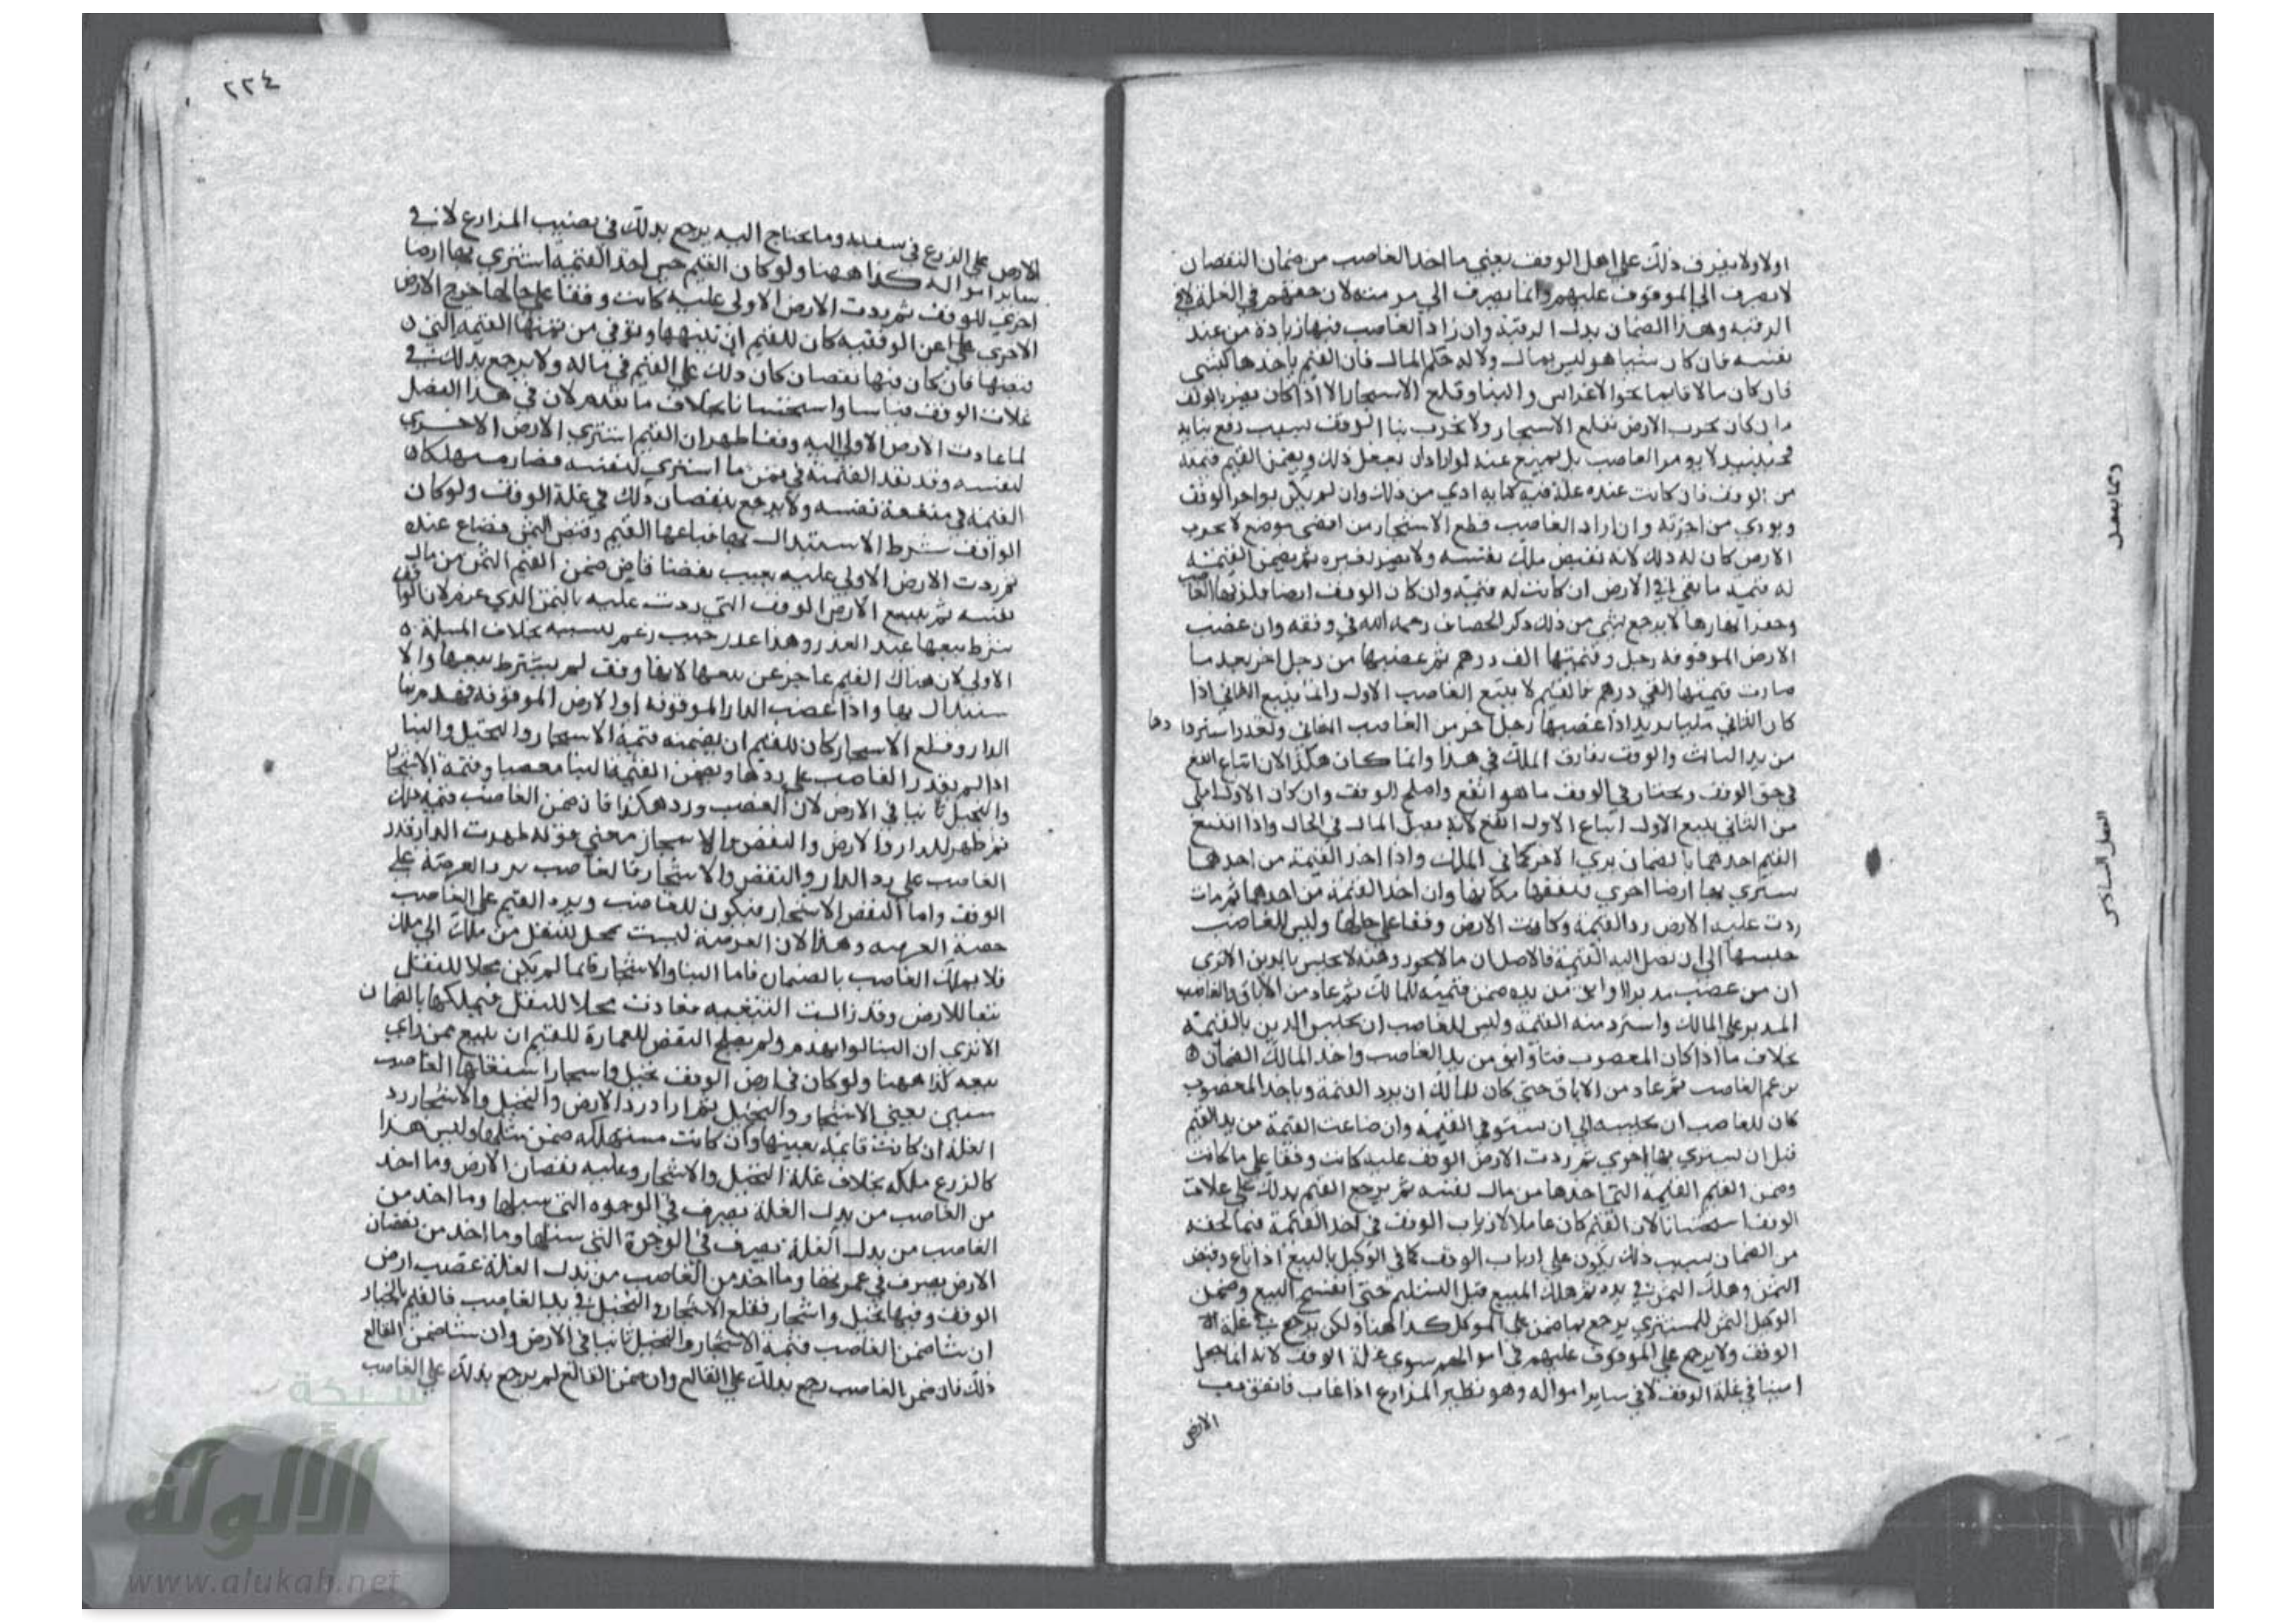 اولا ولا يفرق ذلك على اهل الوقف يعني ما اخذ الغاصب من ضمان النقصان
لا يصرف الى الموقوف عليهم وانما يصرف الى مرمته لان حقهم في الغلة لا في
الرقبة وهذا الضمان بدل الرقبة وان زاد الغاصب فيها زيادة من عند
نفسه فان كان شيا هو ليس بمال ولا له حكم المال فان القيم ياخذها
فان كان مالا قايما نحو الاغراس والبنا وقلع الاشجار الا اذا كان يضر بالوقف
كان يخرب الارض بقلع الاشجار ولا يخرب بنا الوقف بسبب رفع بنايه
لا يومر الغاصب بل يمنع عنه لو اراد ان يفعل ذلك ويضمن القيم قيمته
من الوقف فان كانت عنده غلة فيه كفاية ادي من ذلك وان لم يكن يواجر الوقف
ويودي من اجرته وان اراد الغاصب قطع الاشجار من اقصى موضع لا يخرب
الارض كان له ذلك لانه تقبض ملك نفسه ولا يضر لغيره ثم يضمن القيمة
له قيمة ما بقي في الارض ان كانت له قيمة وان كان الوقف ارضا
وحفر انهارها لا يرجع بشي من ذلك ذكر الخصاف رحمه الله في وقفه وان غصب
الارض الموقوفة رجل وقيمتها الف درهم ثم غصبها من رجل اخر بعد ما
صارت قيمتها الفي درهم فالقيم لا يتبع الغاصب الاول وانما يتبع الثاني اذا
كان الثاني مليا يريد اذا غصبها رجل اخر من الغاصب الثاني وتعذر استردادها
من يد الثالث والوقف يفارق الملك في هذا وانما كان هكذا لان اتباع انفع
في حق الوقف ويختار في الوقف ما هو انفع واصلح للوقف وان كان الاول املى
من الثاني يتبع الاول اتباع الاول انفع لانه يعجل المال في الحال واذا اتبع
القيم احدهما بالضمان بري الاخر كما في الملك واذا اخذ القيمة من احدهما
يشتري بها ارضا اخرى فيقفها مكانها وان اخذ القيمة من احدهما ثم
ردت عليه الارض رد القيمة وكانت الارض وقفا على حالها وليس للغاصب
حبسها الى ان يصل اليه القيمة فالاصل ان ما لا يجوز رهنه لا يحبس بالدين الا ترى
ان من غصب مدبرا وابق من يده ضمن قيمته للمالك ثم عاد من الاباق
المدبر على المالك واسترد منه القيمة وليس للغاصب ان يحبس الدين بالقيمة
بخلاف ما اذا كان المغصوب قنا وابق من يد الغاصب واخذ المالك الضمان
بزعم الغاصب ثم عاد من الاباق حتى كان للمالك ان يرد القيمة وياخذ المغصوب
كان للغاصب ان يحبسه الى ان يستوفي القيمة وان ضاعت القيمة من يد القيم
قبل ان يشتري بها اخرى ثم ردت الارض الوقف عليه كانت وقفا على ما كانت
وضمن القيم القيمة التي اخذها من مال نفسه ثم يرجع القيم بذلك على غلات
الوقف استحسانا لان القيم كان عاملا لارباب الوقف في اخذ القيمة فما لحقه
من الضمان بسبب ذلك يكون على ارباب الوقف كما في الوكيل بالبيع اذا باع وقبض
الثمن وهلك الثمن في يده ثم هلك المبيع قبل التسليم حتى انفسخ البيع وضمن
الوكيل الثمن للمشتري يرجع بما ضمن على الموكل كذا هنا ولكن يرجع في غلة
الوقف ولا يرجع على الموقوف عليهم في اموالهم سوى غلة الوقف لانه انما يعمل
في غلة الوقف لا في ساير امواله وهو نظير المزارع اذا غاب فانفق رب
الارض
وفيما يتصل
الفصل السادس
٢٢٤
الارض على الزرع في سقايته وما يحتاج اليه يرجع بذلك في نصيب المزارع لا في
ساير امواله كذا ههنا ولو كان القيم حين اخذ القيمة اشترى بها ارضا
اخرى للوقف ثم ردت الارض الاولى عليه كانت وقفا على حالها وخرج الارض
الاخرى عن الوقفية كان للقيم ان يبيعها ويوفي من ثمنها القيمة التي
قبضها فان كان فيها نقصان كان ذلك على القيم في ماله ولا يرجع بذلك في
غلات الوقف قياسا واستحسانا بخلاف ما تقدم لان في هذا الفصل
لما عادت الارض الاولى اليه وقفا ظهر ان القيم اشترى الارض الاخرى
لنفسه وقد نقد القيمة في ثمن ما اشترى لنفسه فصار مستهلكا
القيمة في منفعة نفسه ولا يرجع بنقصان ذلك في غلة الوقف ولو كان
الواقف شرط الاستبدال بها فباعها القيم وقبض الثمن فضاع عنده
ثم ردت الارض الاولى عليه بعيب بقضا قاض ضمن القيم الثمن من مال
نفسه ثم يبيع الارض الوقف التي ردت عليه بالثمن الذي غرم لان الواقف
شرط بيعها عند العذر وهذا عذر حيث رغم بسببه بخلاف المسيلة
الاولى لان هناك القيم عاجز عن بيعها لانها وقف لم يشترط بيعها ولا
استبدال بها واذا غصب الدار الموقوفة او الارض الموقوفة فهدم بنا
الدار وقلع الاشجار كان للقيم ان يضمنه قيمة الاشجار والنخيل والبنا
اذا لم يقدر الغاصب على ردها ويضمن القيم البنا مغصبا وقيمة الاشجار
والنخيل ثابتا في الارض لان الغصب ورد هكذا فان ضمن الغاصب قيمة ذلك
ثم ظهر للدار والارض والنقض والاشجار معنى قوله ظهرت الدار قدر
الغاصب على رد الدار والنقض والاشجار فالغاصب يرد العرصة على
الوقف واما النقض والاشجار فيكون للغاصب ويرد القيم على الغاصب
حصة العرصة وهذا لان العرصة ليست بمحل للنقل من ملك الى ملك
فلا يملك الغاصب بالضمان فاما البنا والاشجار فانما لم يكن محلا للنقل
تبعا للارض وقد زالت التبعية فعادت محلا للنقل فيملكها بالضمان
الا ترى ان البنا لو انهدم ولم يصلح النقض للعمارة للقيم ان يبيع
بيعه كذا ههنا ولو كان في ارض الوقف نخيل واشجار استغلها الغاصب
سنين يعني الاشجار والنخيل ثم اراد رد الارض والنخيل والاشجار رد
الغلة ان كانت قايمة بعينها وان كانت مستهلكة ضمن مثلها وليس هذا
كالزرع ملكه بخلاف غلة النخيل والاشجار وعليه نقصان الارض وما اخذ
من الغاصب من بدل الغلة يصرف في الوجوه التي سبلها وما اخذ من
الغاصب من بدل الغلة يصرف في الوجوه التي سبلها وما اخذ من نقصان
الارض يصرف في عمرتها وما اخذ من الغاصب من بدل الغلة غصب ارض
الوقف وفيها نخيل واشجار فقلع الاشجار والنخيل في يد الغاصب فالقيم بالخيار
ان شا ضمن الغاصب قيمة الاشجار والنخيل ثابتا في الارض وان شا ضمن القالع
ذلك فان ضمن الغاصب رجع بذلك على القالع وان ضمن القالع لم يرجع بذلك على الغاصب
شبكة
الألوكة
www.alukah.net